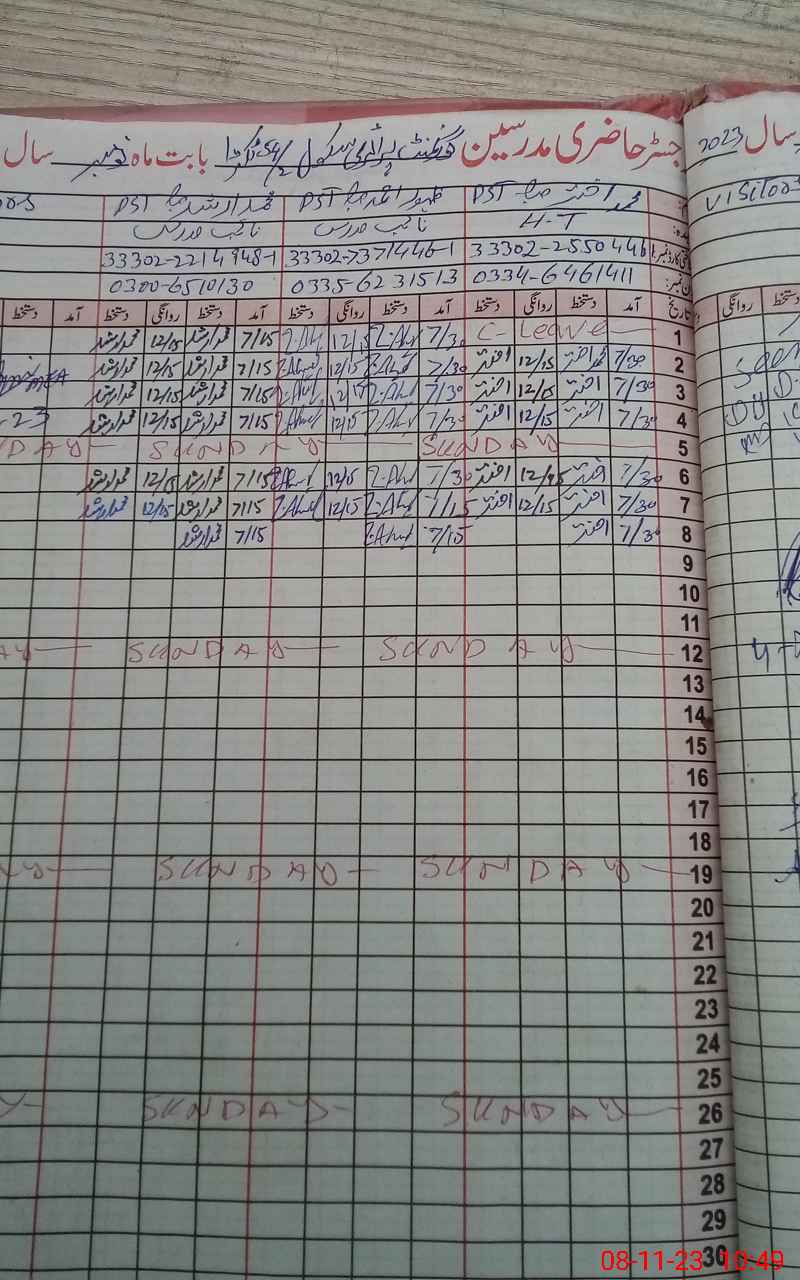 جسٹر حاضری مدرسین گورنمنٹ پرائمری سکول بابت ماہ نومبر سال
2023 سال
محمد اختر صاحب PST ظہور احمد صاحب PST محمد ارشد صاحب PST
H-T نائب مدرس نائب مدرس
33302-2550446 33302-7371446-1 33302-2214948-1
0334-6461411 0335-6231513 0300-6510130
تاریخ آمد دستخط روانگی دستخط آمد دستخط روانگی دستخط آمد دستخط روانگی دستخط آمد دستخط
1 C-Leave 7/30 Z.Ahmd 12/15 Z.Ahmd 7/15 محمد ارشد 12/15 محمد ارشد
2 7/30 محمد اختر 12/15 اختر 7/30 Z.Ahmd 12/15 Z.Ahmd 7/15 محمد ارشد 12/15 محمد ارشد
3 7/30 اختر 12/15 اختر 7/30 Z.Ahmd 12/15 Z.Ahmd 7/15 محمد ارشد 12/15 محمد ارشد
4 7/30 اختر 12/15 اختر 7/30 Z.Ahmd 12/15 Z.Ahmd 7/15 محمد ارشد 12/15 محمد ارشد
5 SUNDAY SUNDAY
6 7/30 اختر 12/15 اختر 7/30 Z.Ahmd 12/15 Z.Ahmd 7/15 محمد ارشد 12/15 محمد ارشد
7 7/30 اختر 12/15 اختر 7/15 Z.Ahmd 12/15 Z.Ahmd 7/15 محمد ارشد 12/15 محمد ارشد
8 7/30 اختر 7/15 Z.Ahmd 7/15 محمد ارشد
9
10
11
12 SUNDAY SUNDAY
13
14
15
16
17
18
19 SUNDAY SUNDAY
20
21
22
23
24
25
26 SUNDAY SUNDAY
27
28
29
30
08-11-23 10:49